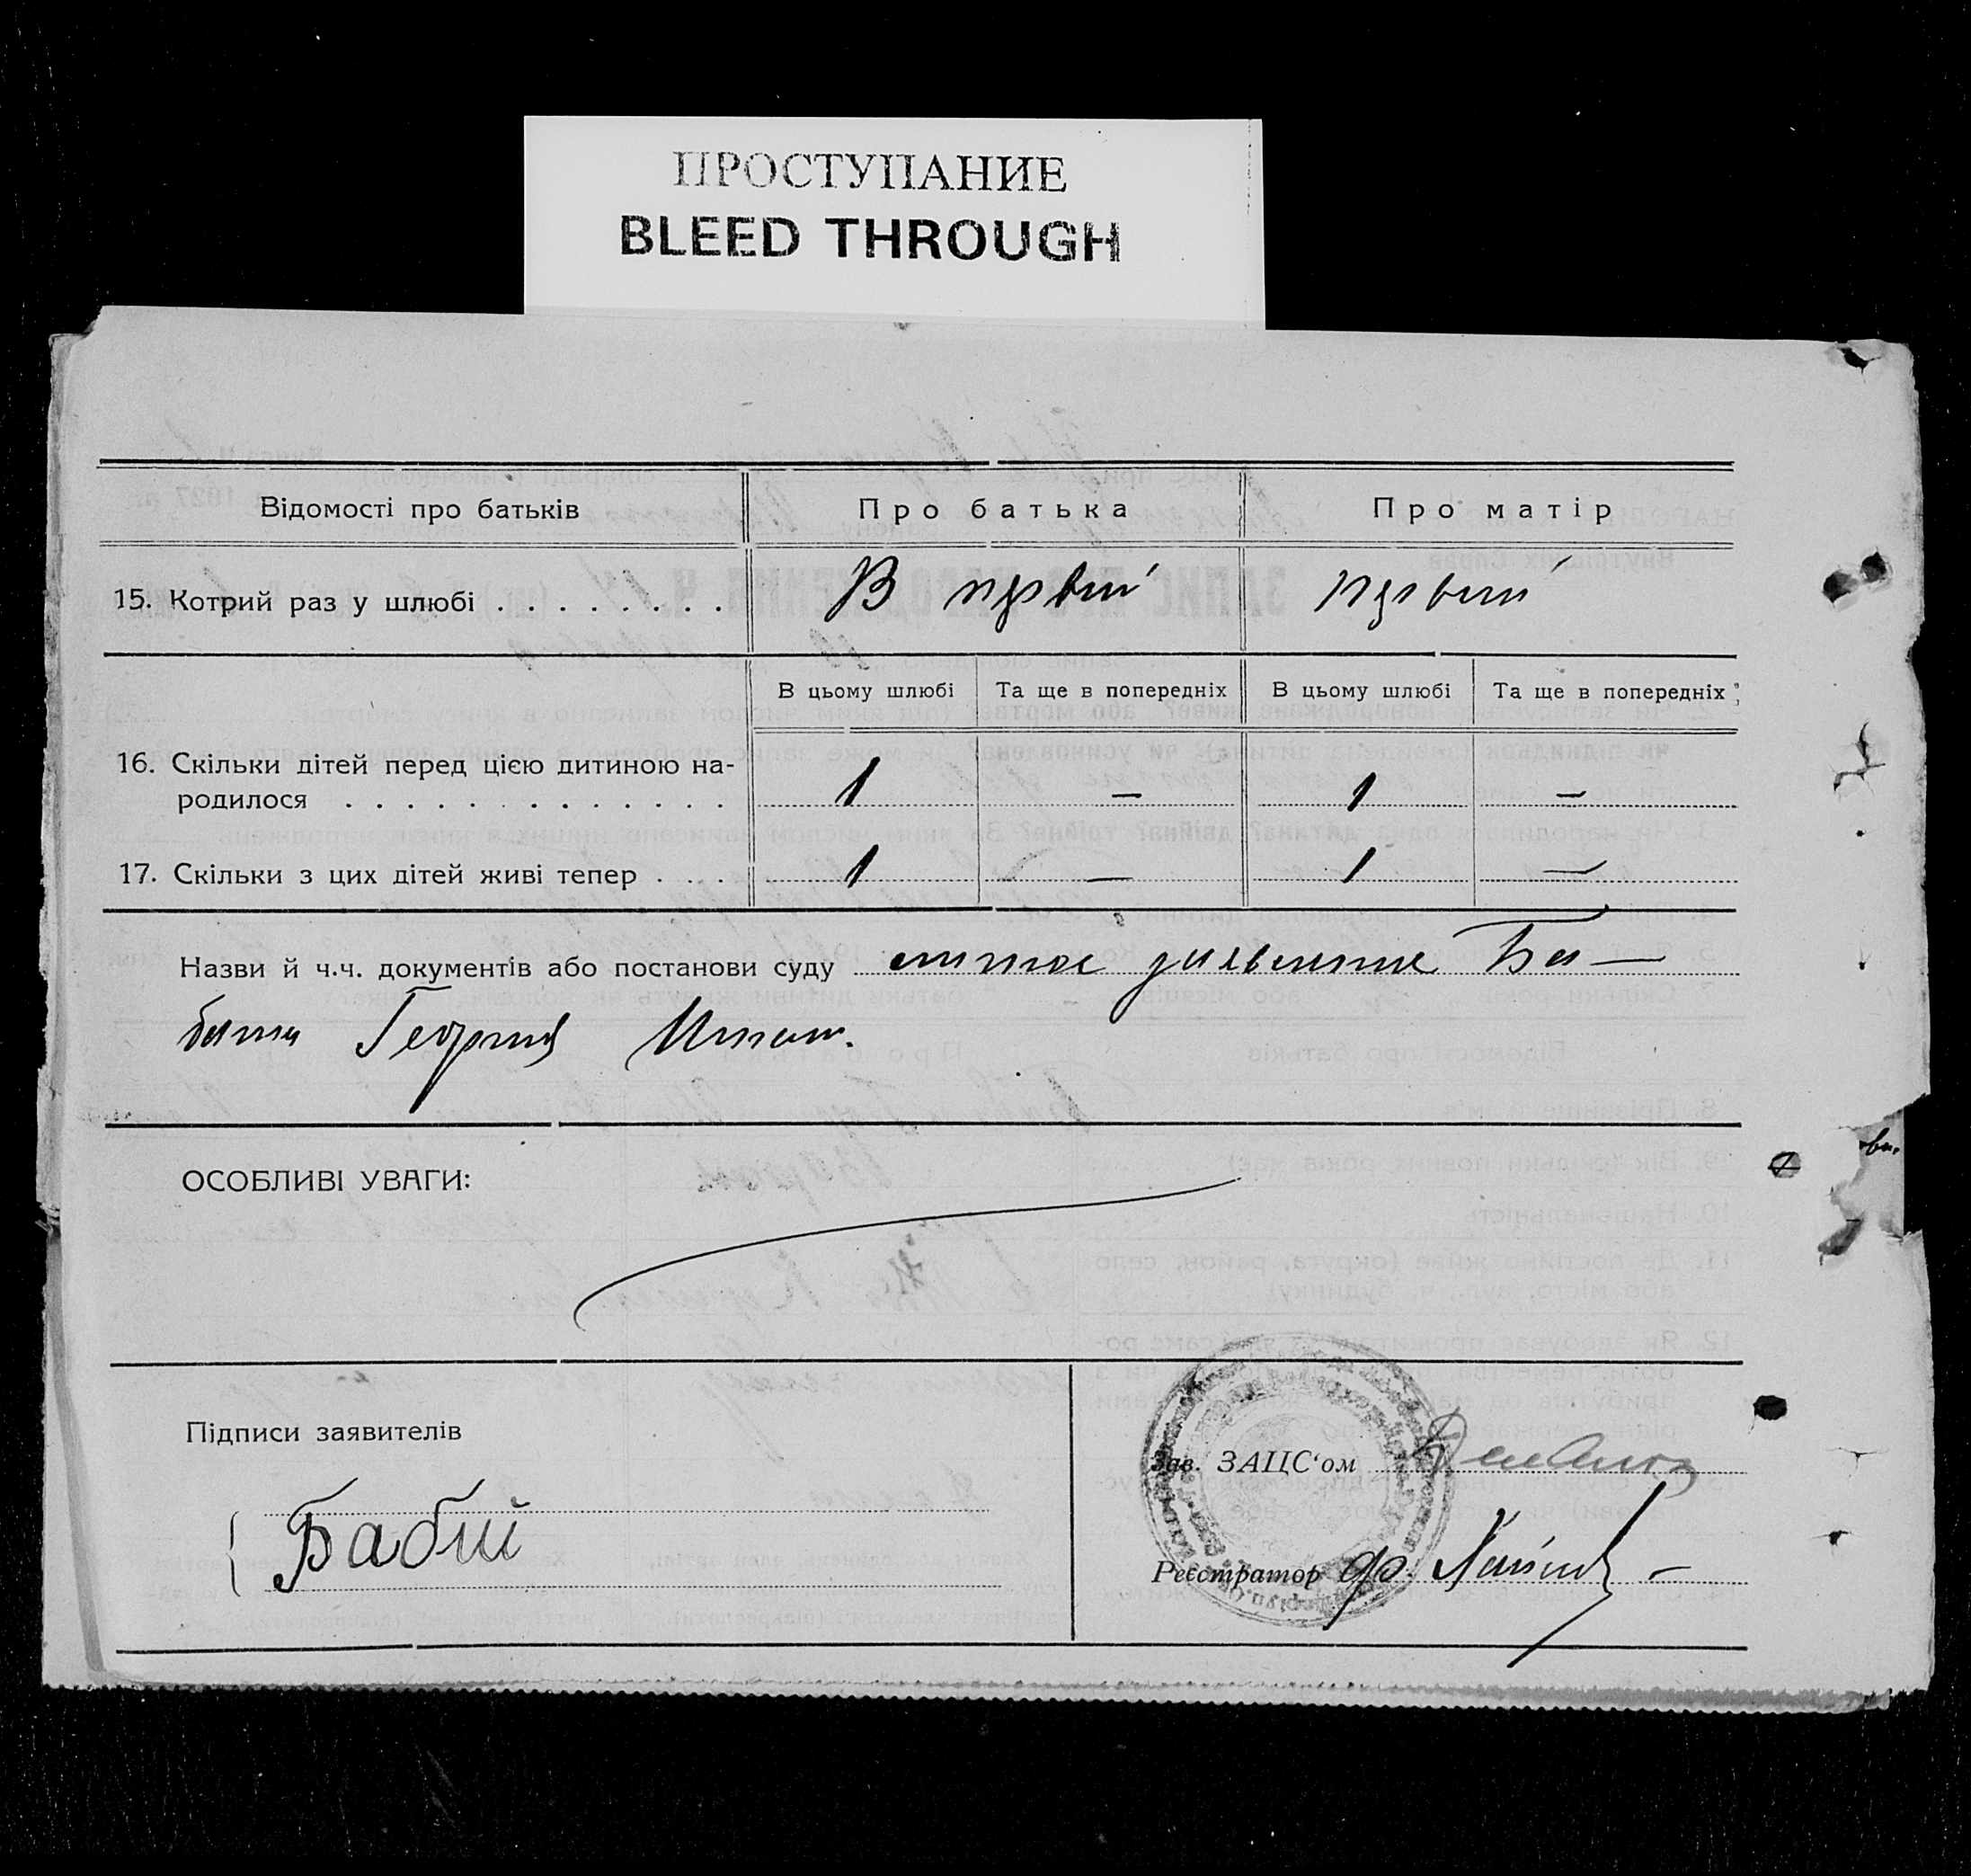 ПРОСТУПАНИЕ
BLEED THROUGH
Відомості про батьків Про батька Про матір
15. Котрий раз у шлюбі . . . . . . . . В первый первый
В цьому шлюбі Та ще в попередніх В цьому шлюбі Та ще в попередніх
16. Скільки дітей перед цією дитиною на-
родилося . . . . . . . . . . . . . 1 — 1 —
17. Скільки з цих дітей живі тепер . . . 1 — 1 —
Назви й ч.ч. документів або постанови суду личное заявление Ба—
бия Георгия
ОСОБЛИВІ УВАГИ:
Підписи заявителів
Бабий
Зав. ЗАЦС‘ом
Реєстратор